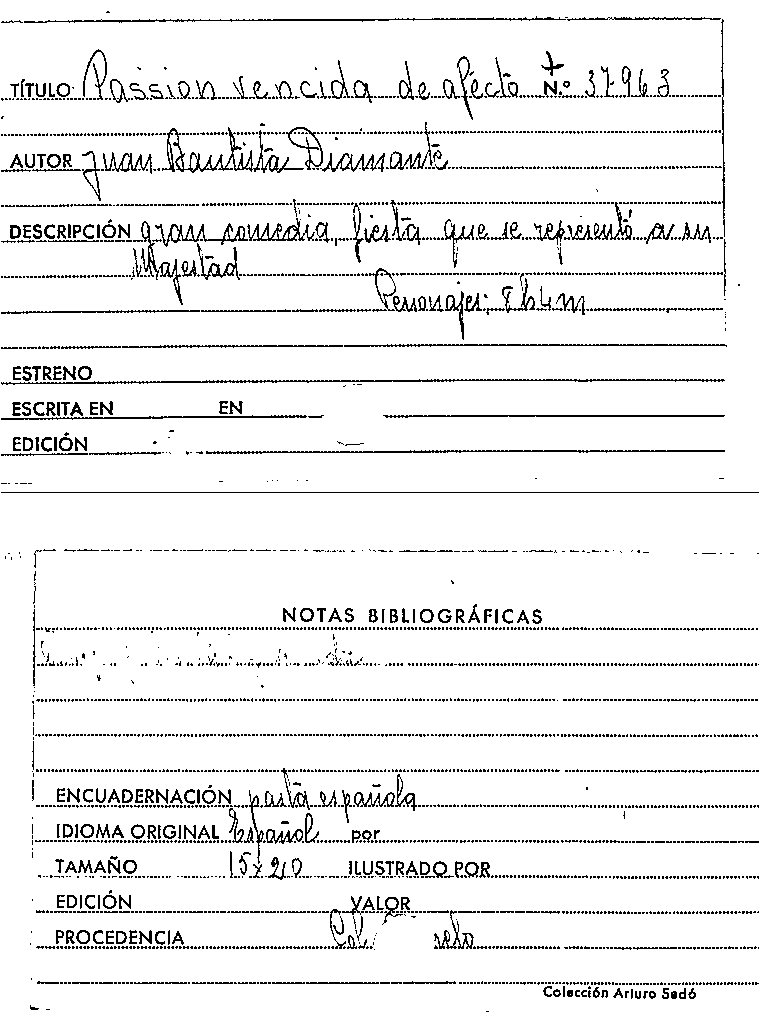 TÍTULO Passion vencida de afecto N.º 37963
AUTOR Juan Bautista Diamante
DESCRIPCIÓN gran comedia, fiesta que se representó a su
Majestad
Personajes: 8h4m
ESTRENO
ESCRITA EN EN
EDICIÓN
NOTAS BIBLIOGRÁFICAS
ENCUADERNACIÓN pasta española
IDIOMA ORIGINAL Español por
TAMAÑO 15x210 ILUSTRADO POR
EDICIÓN VALOR
PROCEDENCIA Col.
Colección Arturo Sedó